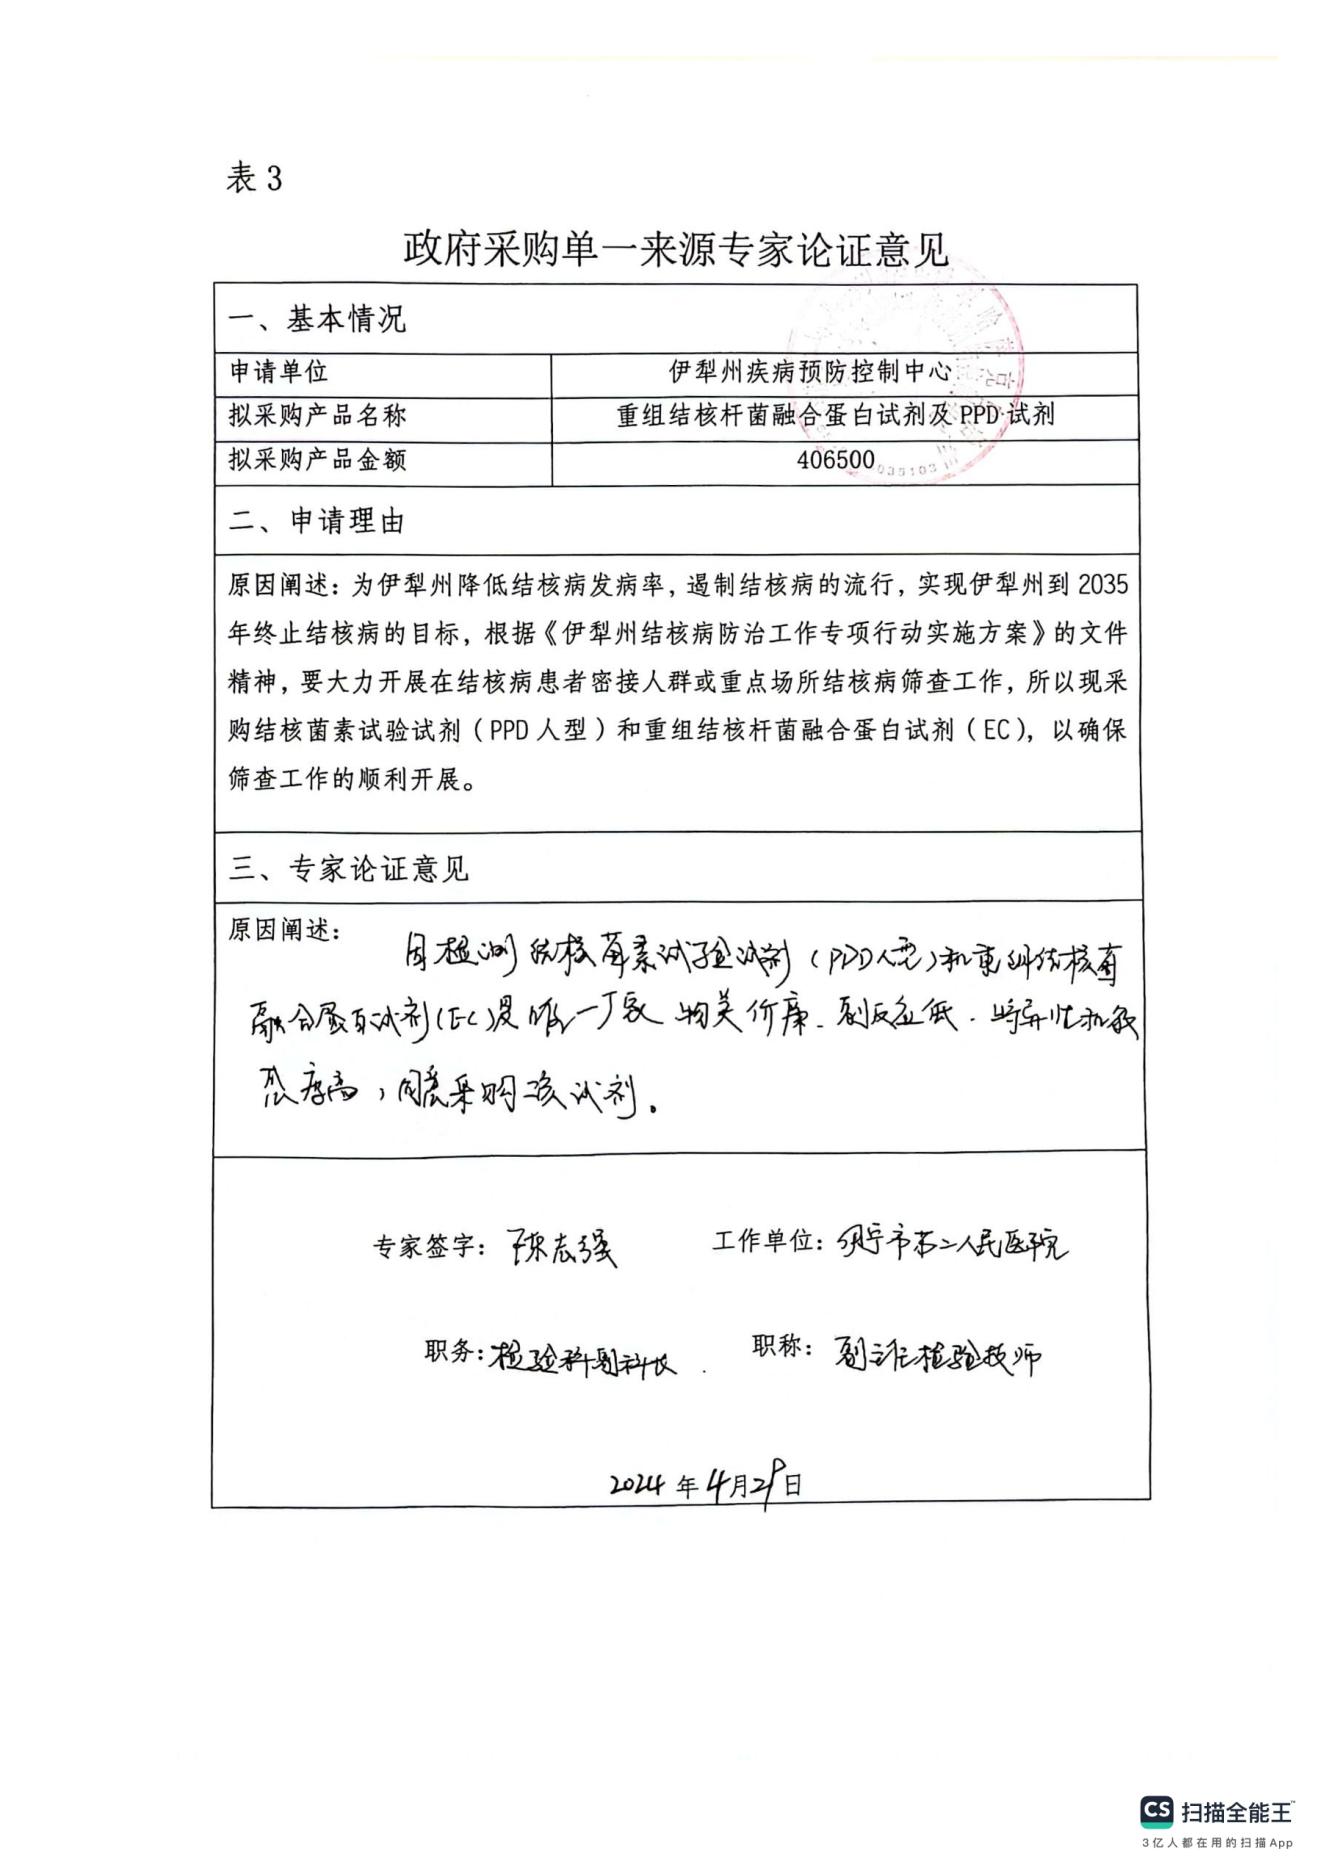 表3
政府采购单一来源专家论证意见
一、基本情况
申请单位 伊犁州疾病预防控制中心
拟采购产品名称 重组结核杆菌融合蛋白试剂及PPD试剂
拟采购产品金额 406500
二、申请理由
原因阐述：为伊犁州降低结核病发病率，遏制结核病的流行，实现伊犁州到2035
年终止结核病的目标，根据《伊犁州结核病防治工作专项行动实施方案》的文件
精神，要大力开展在结核病患者密接人群或重点场所结核病筛查工作，所以现采
购结核菌素试验试剂（PPD人型）和重组结核杆菌融合蛋白试剂（EC），以确保
筛查工作的顺利开展。
三、专家论证意见
原因阐述：
因检测结核菌素试验试剂（PPD人型）和重组结核菌
融合蛋白试剂（EC）是唯一厂家 物美价廉、副反应低、特异性和敏
感度高，同意采购该试剂。
专家签字：陈志强 工作单位：伊宁市第二人民医院
职务：检验科副科长 职称：副主任检验技师
2024年4月29日
035103
CS 扫描全能王
3亿人都在用的扫描App